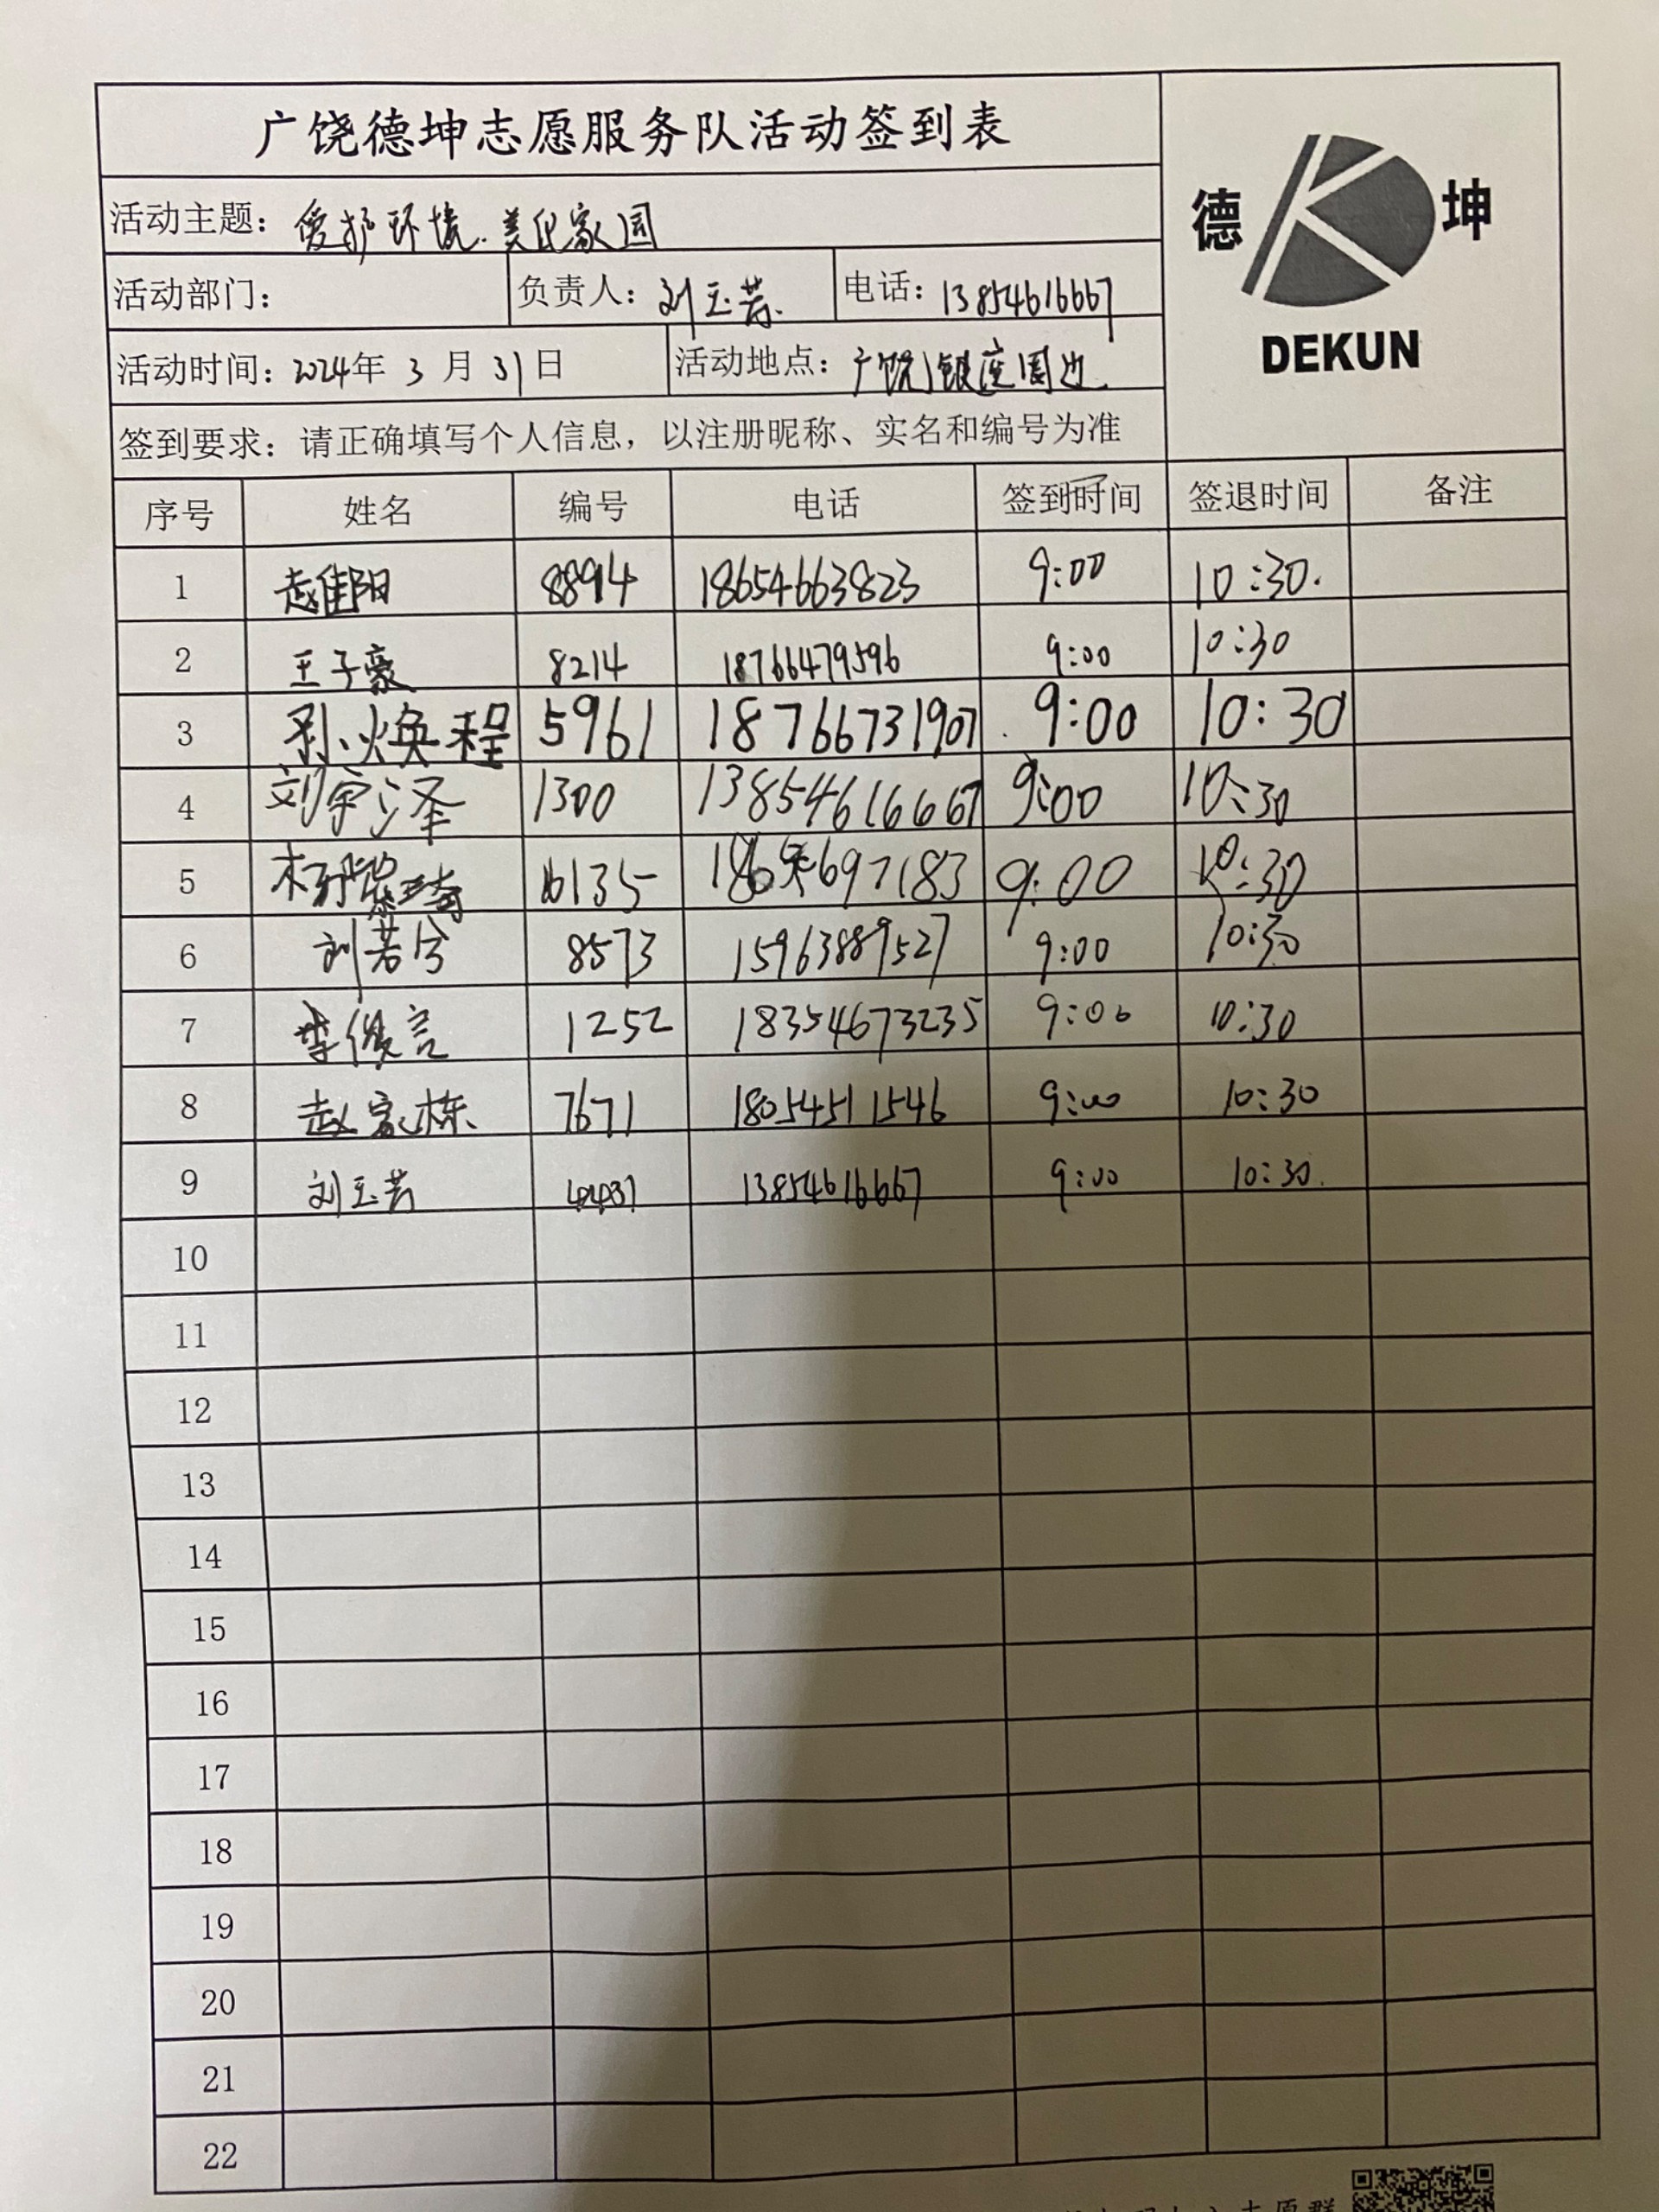 广饶德坤志愿服务队活动签到表
德 坤
DEKUN
活动主题：爱护环境.美化家园
活动部门： 负责人：刘玉芳. 电话：13854616667
活动时间：2024年 3 月 31 日 活动地点：广饶银座周边.
签到要求：请正确填写个人信息，以注册昵称、实名和编号为准
序号 姓名 编号 电话 签到时间 签退时间 备注
1 赵佳阳 8894 18654663823 9:00 10:30.
2 王子豪 8214 18766479596 9:00 10:30
3 孙焕程 5961 18766731907 9:00 10:30
4 刘宇泽 1300 13854616667 9:00 10:30
5 6135 9:00 10:30
6 刘若兮 8573 15963889527 9:00 10:30
7 李俊言 1252 18354673235 9:00 10:30
8 赵家栋 7671 18054511546 9:00 10:30
9 刘玉芳 13854616667 9:00 10:30.
10
11
12
13
14
15
16
17
18
19
20
21
22